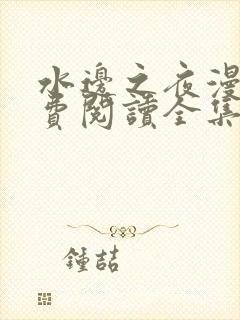 水邊之夜漫
費閱讀全集
鍾喆